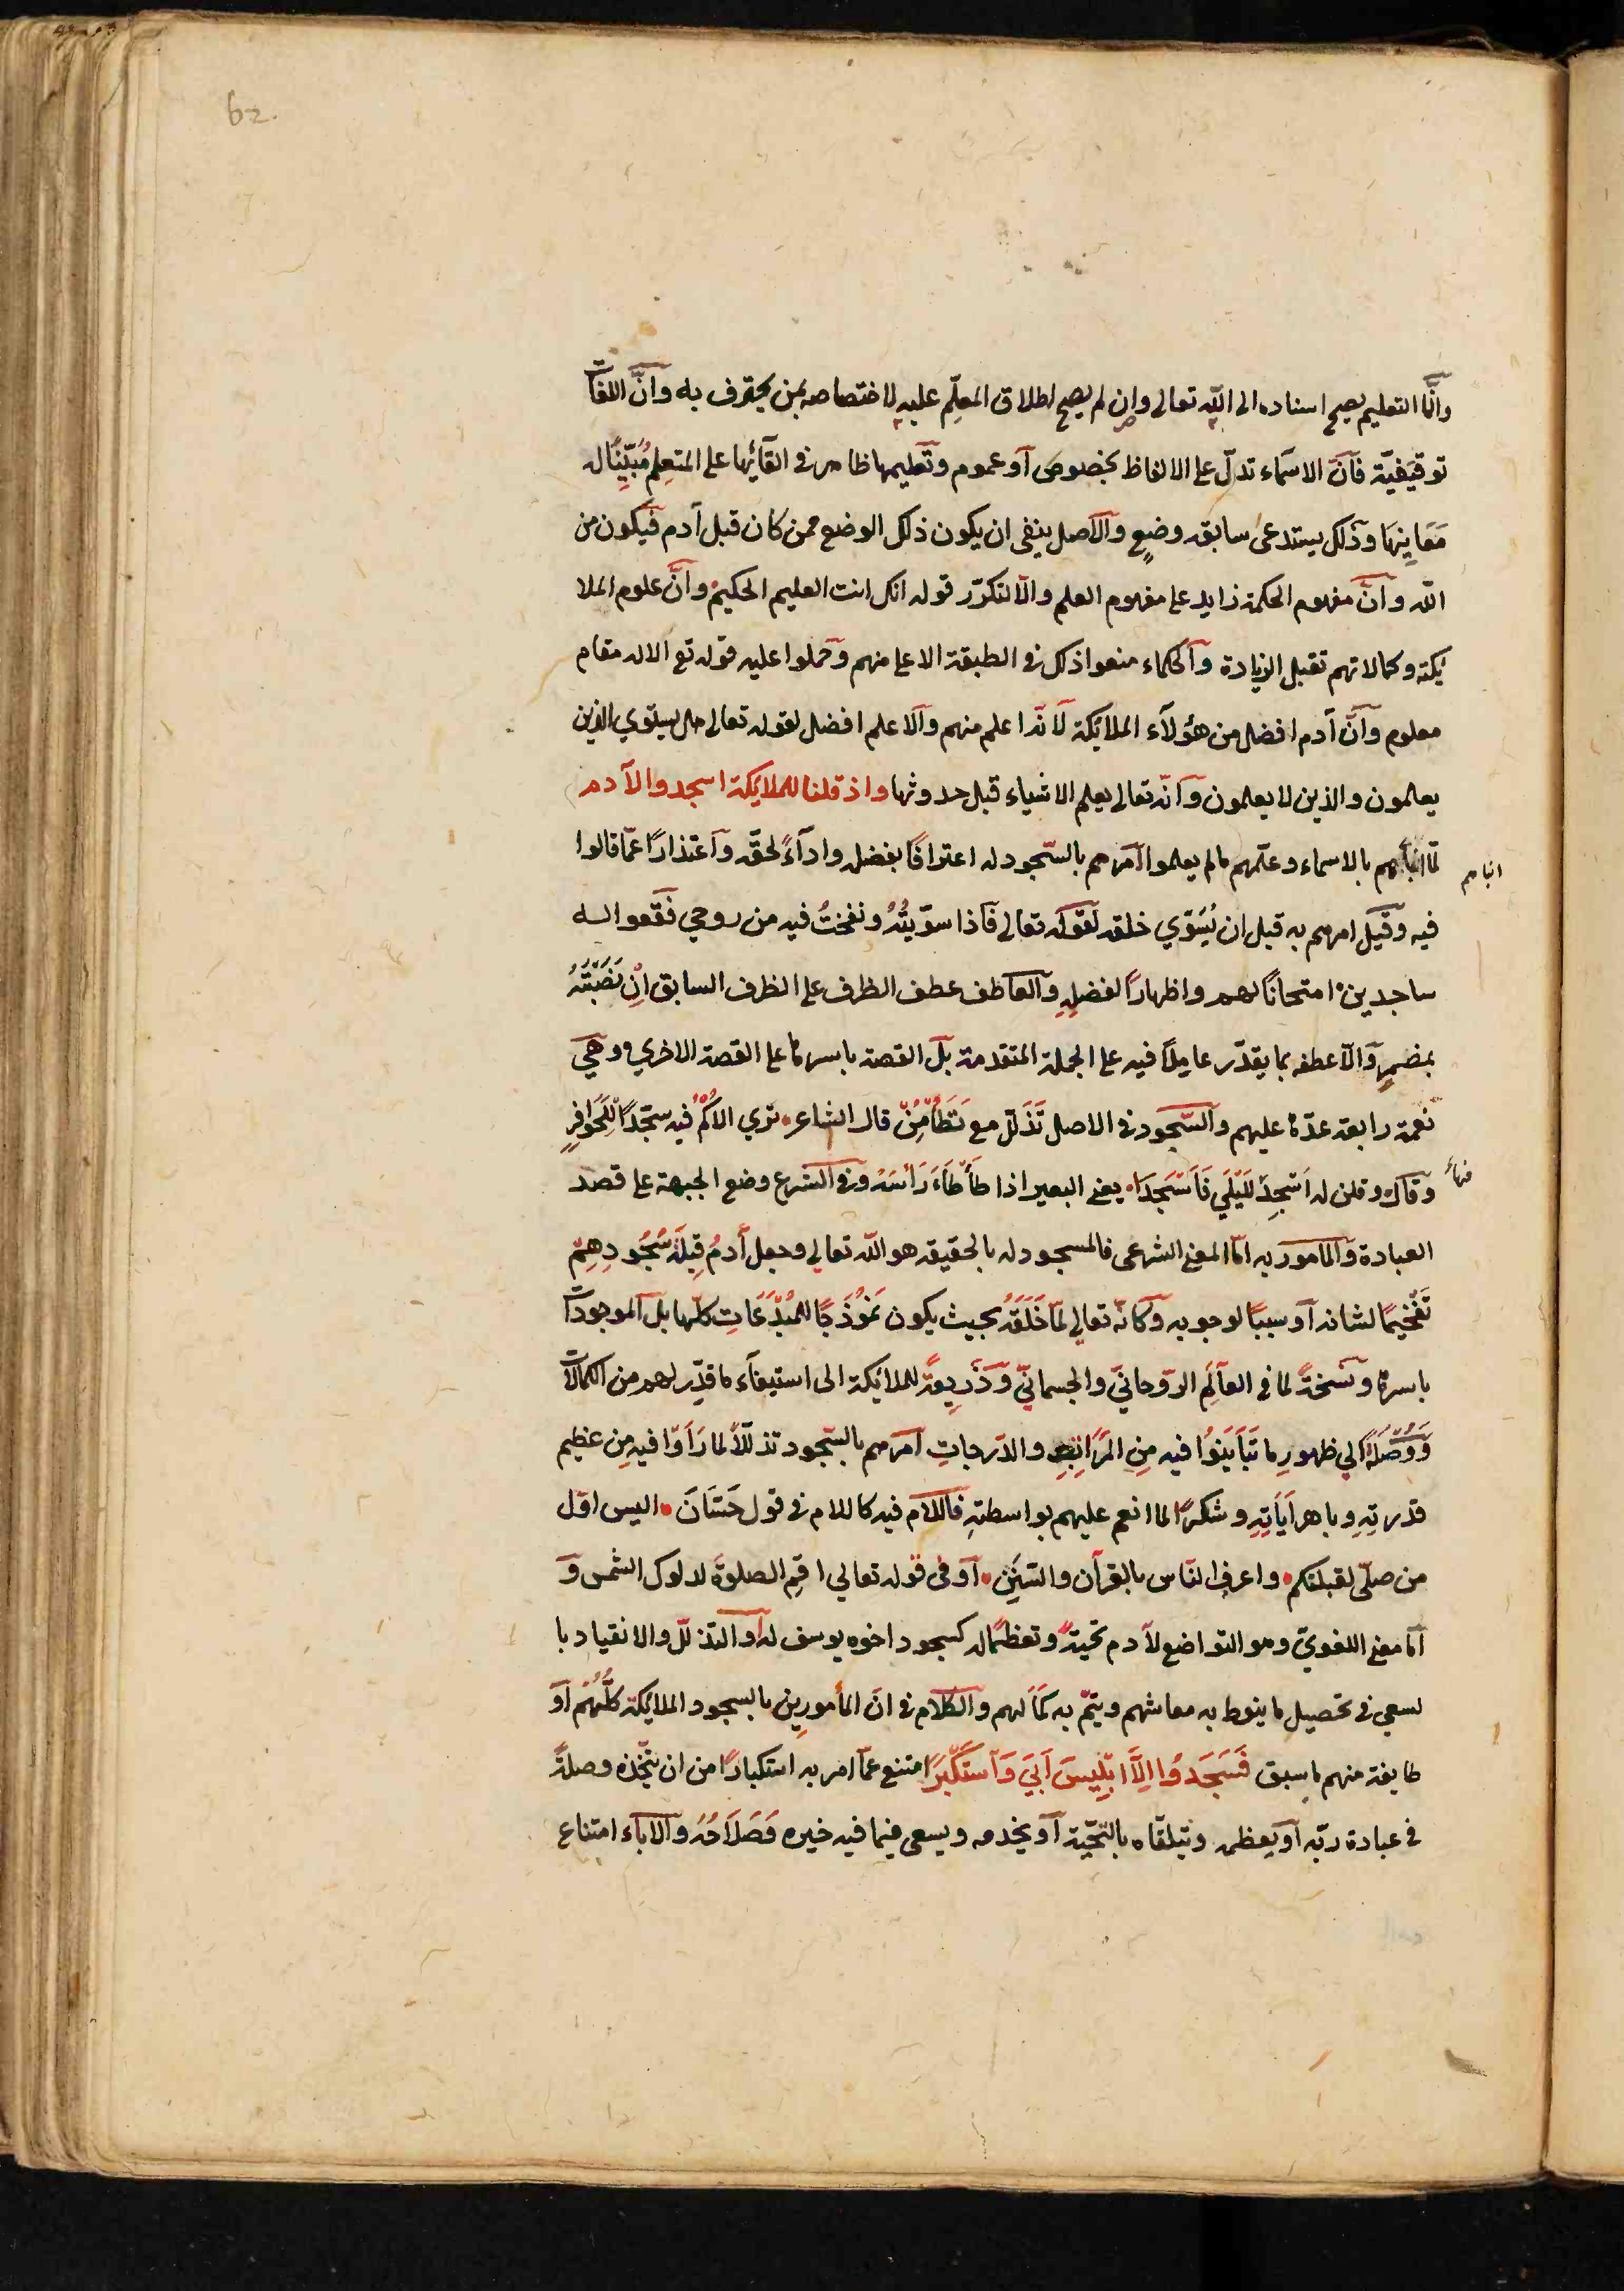 62.
وانّما التعليم يصح اسناده الى اللّه تعالى وان لم يصح اطلاق المعلّم عليه لاختصاصه بمن يحترف به وانَّ اللغات
توقيفيّة فانّ الاسماء تدلّ على الالفاظ بخصوص او عموم وتعليمها ظاهر فى القائها على المتعلِم مُبَيِّنًا له
مَعَانِيَهَا وذلك يستدعى سابقه وضعٍ والاصل ينفى ان يكون ذلك الوضع ممن كان قبل آدم فيكون من
اللّه وانّ مفهوم الحكمة زايد على مفهوم العلم والّا لتكرّر قوله انك انت العليم الحكيم وانّ علوم الملا
ئكة وكمالاتهم تقبل الزيادة والحكماء منعوا ذلك فى الطبقة الاعلى منهم وحملوا عليه قوله تع الا له مقام
معلوم وانّ آدم افضل من هؤلاء الملائكة لانّه اعلم منهم والاعلم افضل لقوله تعالى هل يستوي الذين
يعلمون والذين لا يعلمون وانّه تعالى يعلم الاشياء قبل حدوثها واذ قلنا للملائكة اسجدوا لآدم
لمّا انبأهم بالاسماء وعلّمهم ما لم يعلموا امرهم بالسّجود له اعترافًا بفضله واداءً لحقّه واعتذارًا عمّا قالوا
انباهم
فيه وقيل امرهم به قبل ان يُسَوّي خلقه لقوله تعالى فاذا سوّيتُهُ ونفختُ فيه من روحي فَقَعوا له
ساجدين امتحانًا لهم واظهارًا لفضلِهِ والعاطف عطف الظرف على الظرف السابق اِنْ نَصَبْتَهُ
بمضمرٍ والّا عطفه بما يقدّر عامِلًا فيه على الجملة المتقدمة بل القصة باسرها على القصة الاخري وهي
نعمة رابعة عدّها عليهم والسّجود فى الاصل تَذَلّل مع تَطَأمُنٍ قال الشاعر ٠ تري الاُكْمُ فيه سجّدًا لِلْحَوَافِرِ
وقال وقلن له اَسْجِدْ لِلَيْلَي فَاَسْجَدَا ٠ يعنى البعير اذا طَأطَاءَ رَأسَهُ وفى الشرع وضع الجبهة على قصد
العبادة والمامور به امّا المعنى الشرعى فالمسجود له بالحقيقه هو اللّه تعالي وجعل أدمُ قِبْلَةَ سُجُودِهِمْ
تَفْخيمًا لشانه او سببًا لوجوبه وكانّه تعالي لمّا خَلَقَهُ بحيث يكون نَمُوْذَجًا للمُبْدَعَاتِ كلّها بل الموجودات
باسرها ونُسْخَةً لما فى العالَمِ الرّوحانيّ والجسمانيّ وَذَرِيعةً للملائكة الى استيفاء ما قدّر لهم من الكمالات
وَوُصْلَةً الي ظهورِ ما تَبَايَنُوا فيه مِنِ المَرَاتِبِ والدّرجاتِ امرهم بالسّجود تذلّلًا لما رَاَوْا فيه مِن عظيم
قدرتِهِ وباهر آيَاتِهِ وشكرًا لما انعم عليهم بواسطتهِ فاللام فيه كاللام فى قول حَسَّانَ ٠ اليس اوّل
من صلّى لقبلتكم ٠ واعرف النّاس بالقرآن والسُّنَنِ ٠ او فى قوله تعالي اقِمِ الصلوةَ لدلوك الشمس وَ
امّا معنى اللغويّ وهو التواضع لآدم تحيةً وتعظيمًا له كسجود اخوه يوسف له او التذلّل والانقياد با
لسعي فى تحصيل ما ينوط به معاشهم ويتمّ به كَمَالهم والكلام فى انّ المأمورِين بالسجود الملائكة كلُّهُمْ اَوْ
طايفة منهم ما سبق فَسَجَدُوا اِلَّا اِبْلِيسَ اَبَيَ وَاسْتَكْبَرَ امتنع عمّا امر به استكبارًا من ان يتّخذه وصلةً
فى عبادة ربّه او يعظمه ويتلقّاه بالتحيّة او يخدمه ويسعى فيما فيه خيره وَصَلَاحُهُ والاباء امتناع